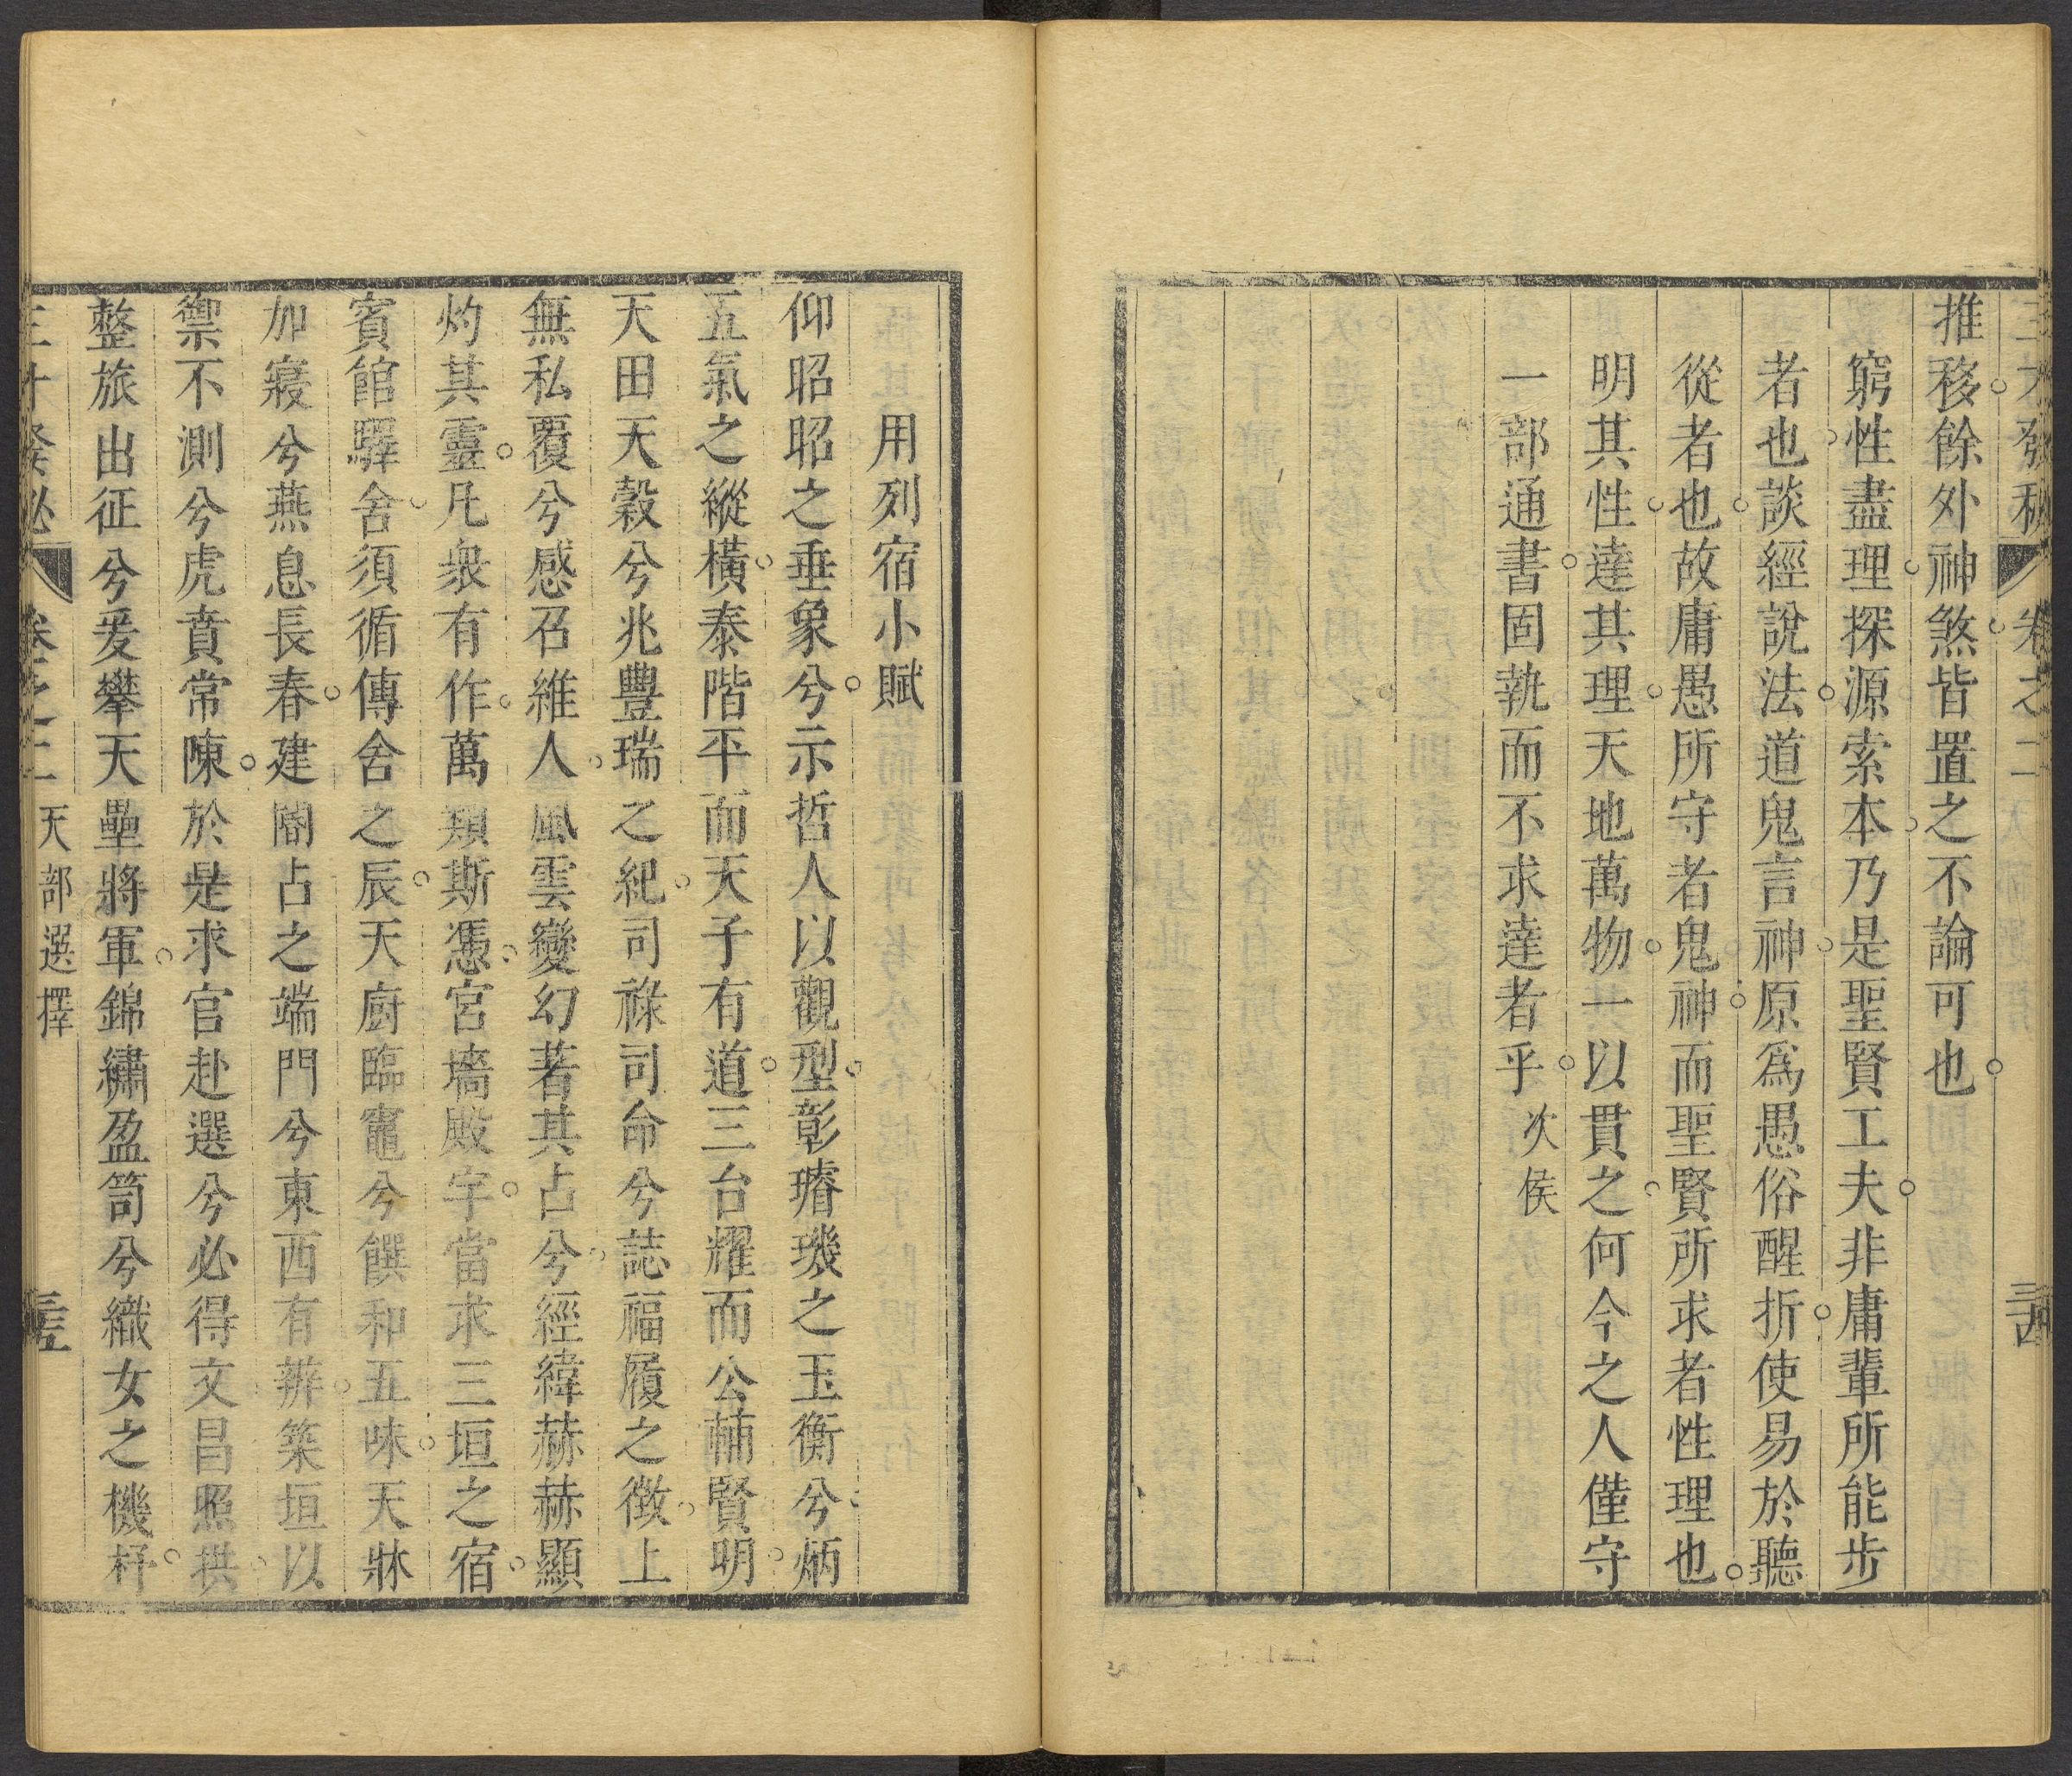 三才發秘 卷之二 天部選擇 三四
推移餘外神煞皆置之不論可也
窮性盡理探源索本乃是聖賢工夫非庸輩所能步
者也談經說法道鬼言神原爲愚俗醒折使易於聽
從者也故庸愚所守者鬼神而聖賢所求者性理也
明其性達其理天地萬物一以貫之何今之人僅守
一部通書固執而不求達者乎 次侯
用列宿小賦
仰昭昭之垂象兮示哲人以觀型彰璿璣之玉衡兮炳
五氣之縱橫泰階平而天子有道三台耀而公輔賢明
天田天穀兮兆豐瑞之紀司祿司命兮誌福履之徵上
無私覆兮感召維人風雲變幻著其占兮經緯赫赫顯
灼其靈凡衆有作萬類斯憑宮墻殿宇當求三垣之宿
賓館驛舍須循傳舍之辰天廚臨竈兮饌和五味天牀
加寢兮燕息長春建闈占之端門兮東西有辨築垣以
禦不測兮虎賁常陳於是求官赴選兮必得文昌照拱
整旅出征兮爰攀天壘將軍錦繡盈笥兮織女之機杼
三才發秘 卷之二 天部選擇 三五